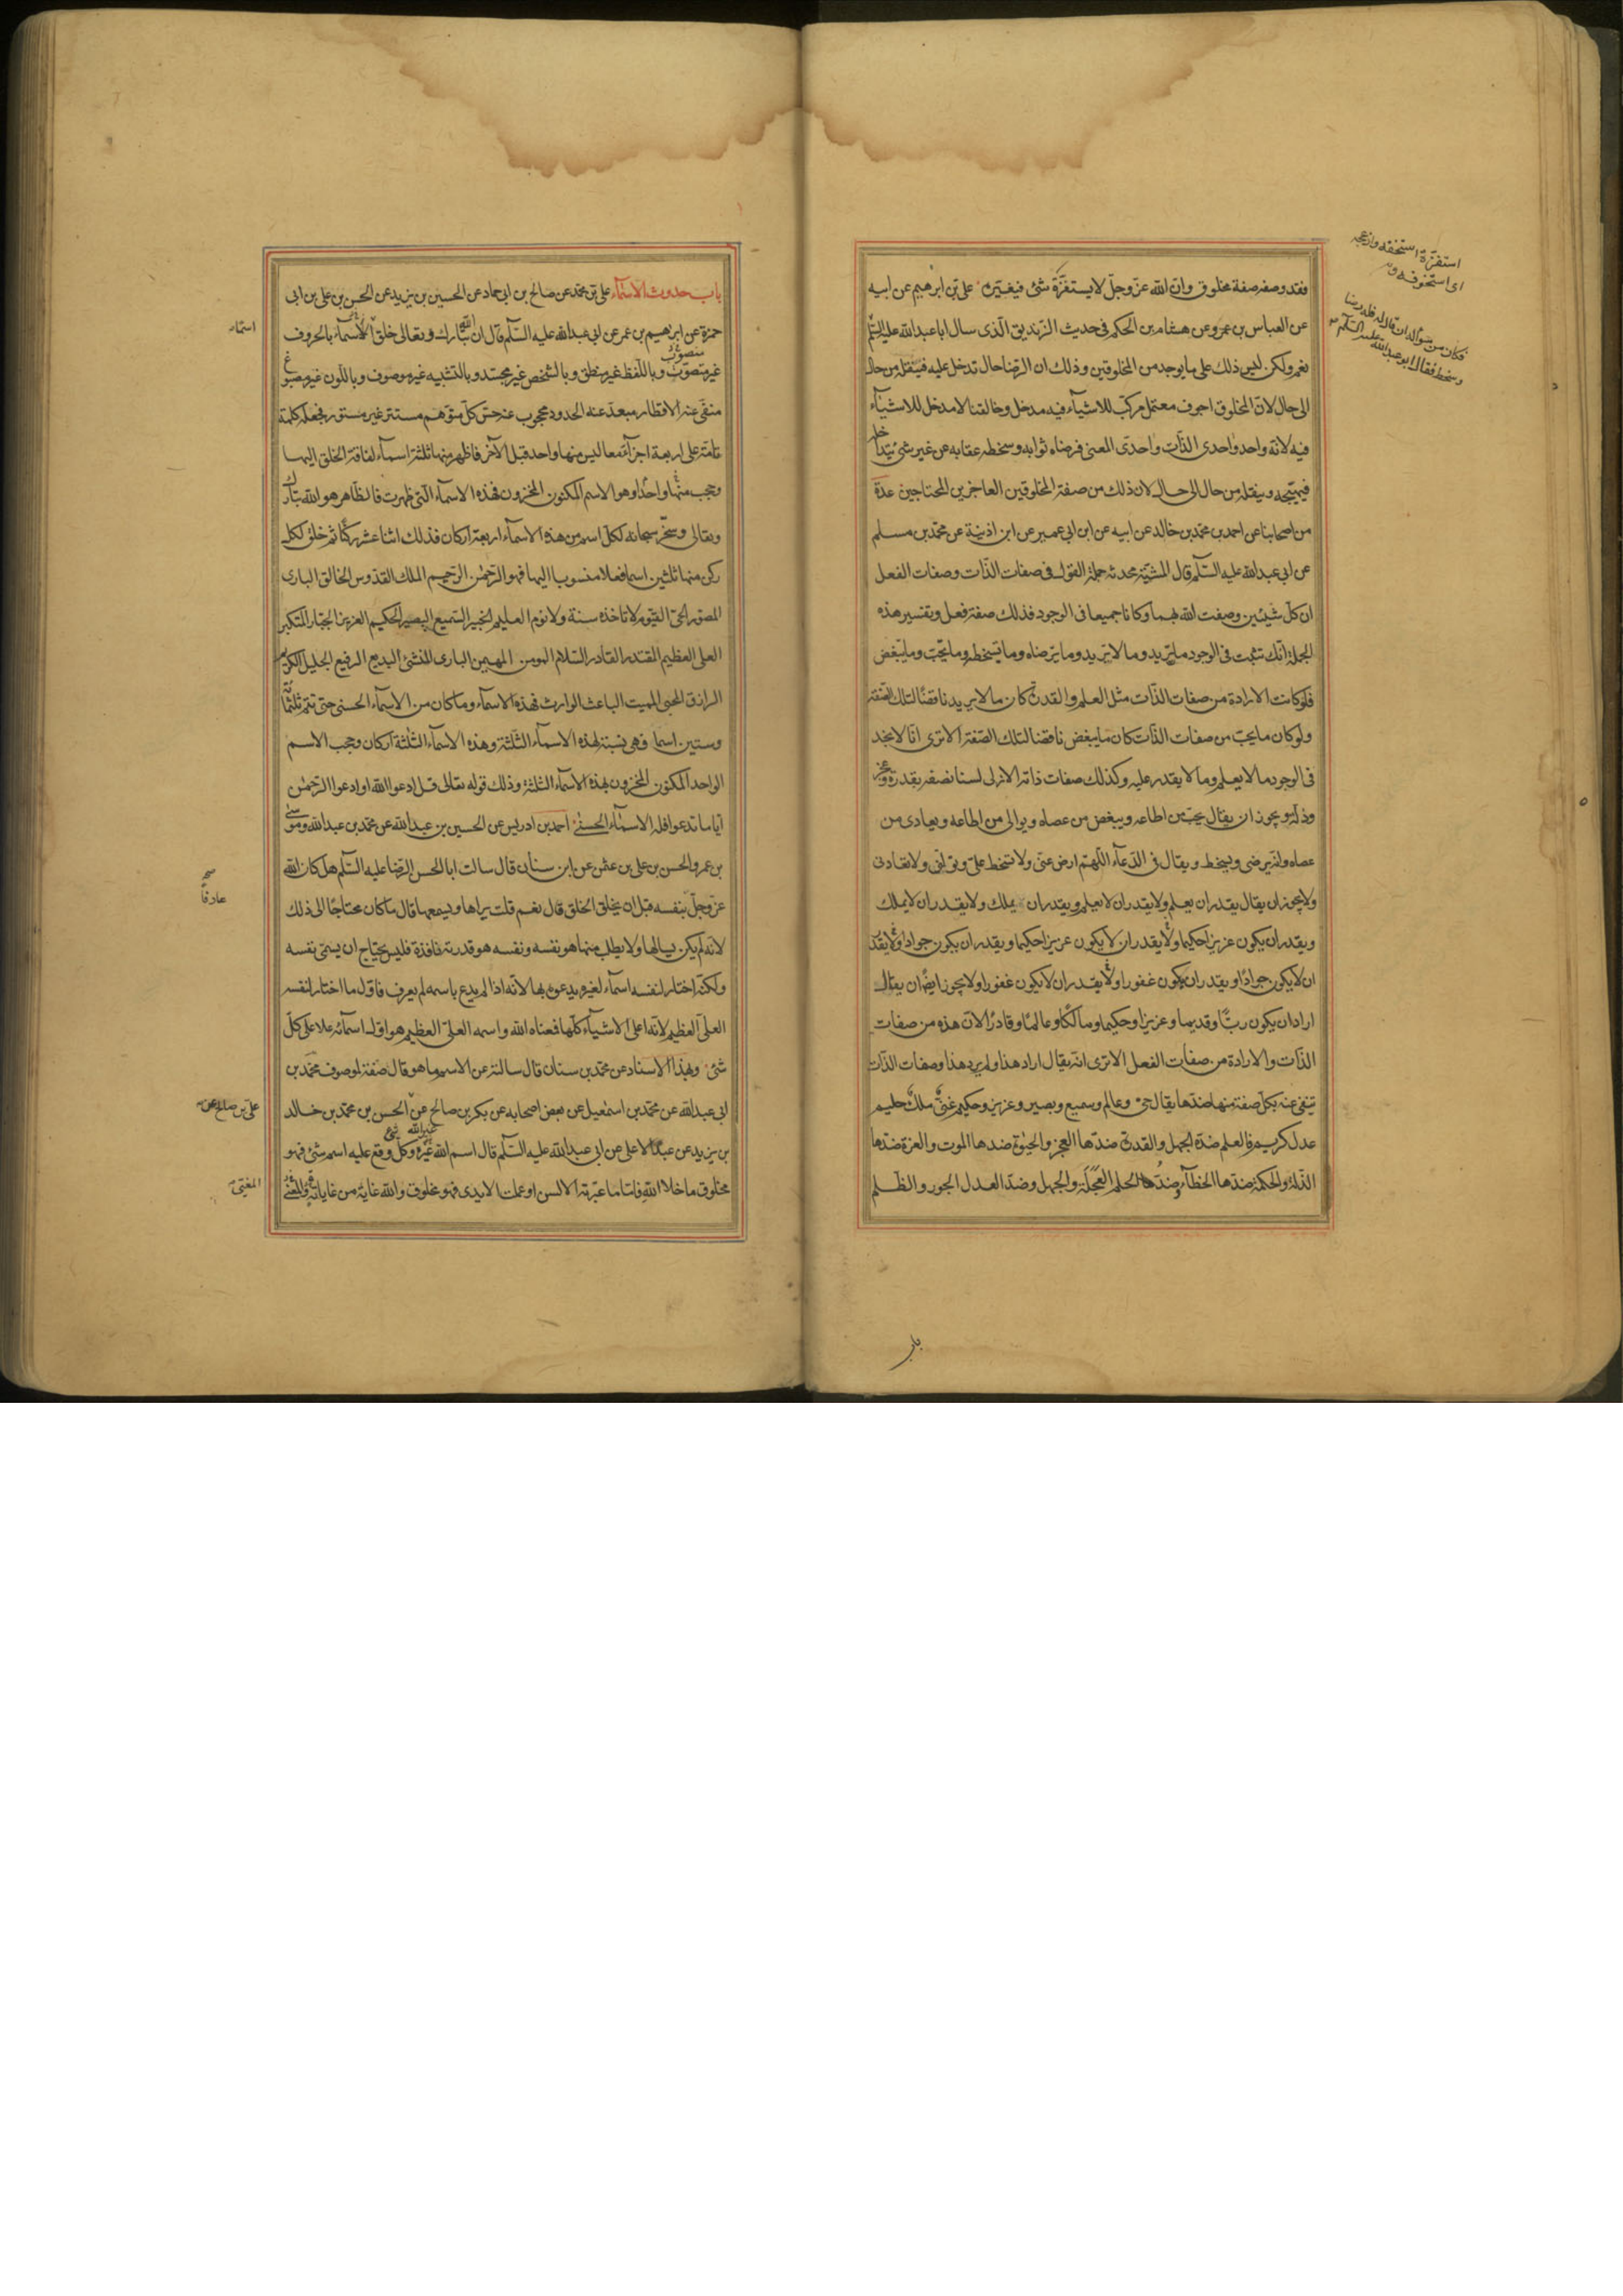 فقد وصفه صفة مخلوق وان الله عزّ وجلّ لا يستفزّه شئ فيغيره علىّ بن ابرهيم عن ابيه
عن العباس بن عمرو عن هشام بن الحكم فى حديث الزنديق الّذى سال ابا عبدالله عليه السّلم
نعم ولكن ليس ذلك على ما يوجد من المخلوقين وذلك ان الرّضا حال تدخل عليه فينقله من حال
الى حال لانّ المخلوق اجوف معتمل مركّب للاشيآء فيه مدخل وخالقنا لا مدخل للاشيآء
فيه لانّه واحد واحدى الذّات واحدى المعنى فرضاه ثوابه وسخطه عقابه من غير شئ يتداخله
فيهيّجه وينقله من حال الى حال لان ذلك من صفة المخلوقين العاجزين المحتاجين عدّة
من اصحابنا عن احمد بن محمّد بن خالد عن ابيه عن ابن ابى عمير عن ابن اذينة عن محمّد بن مسلم
عن ابى عبدالله عليه السّلم قال المشيّة محدثه جملة القول فى صفات الذّات وصفات الفعل
ان كلّ شيئين وصفت الله بهما وكانا جميعا فى الوجود فذلك صفة فعل وتفسير هذه
الجملة انّك تثبت فى الوجود ما يريد وما لا يريد وما يرضاه وما يسخطه وما يحبّ وما يبغض
فلو كانت الارادة من صفات الذّات مثل العلم والقدرة كان ما لا يريد ناقضًا لتلك الصّفة
ولو كان ما يحبّ من صفات الذّات كان ما يبغض ناقضا لتلك الصّفة الا ترى انّا لا نجد
فى الوجود ما لا يعلم وما لا يقدر عليه وكذلك صفات ذاته الازلى لسنا نصفه بقدرة وعجز
وذلّة ويجوز ان يقال يحبّ من اطاعه ويبغض من عصاه ويوالى من اطاعه ويعادى من
عصاه وانّه يرضى ويسخط ويقال فى الدّعآء اللّهمّ ارض عنى ولا تسخط علىّ وتولّنى ولا تعادنى
ولا يجوز ان يقال يقدر ان يعلم ولا يقدر ان لا يعلم ويقدر ان يملك ولا يقدر ان لا يملك
ويقدر ان يكون عزيزا حكيما ولا يقدر ان لا يكون عزيزا حكيما ويقدر ان يكون جوادا ولا يقدر
ان لا يكون جوادًا ويقدر ان يكون غفورا ولا يقدر ان لا يكون غفورا ولا يجوز ايضًا ان يقال
اراد ان يكون ربًّا وقديما وعزيزا وحكيما ومالكًا وعالمًا وقادرًا لانّ هذه من صفات
الذّات والارادة من صفات الفعل الا ترى انّه يقال اراد هذا ولم يرد هذا وصفات الذّات
تنفى عنه بكلّ صفة منها ضدّها يقال حىّ وعالم وسميع وبصير وعزيز وحكيم غنىّ ملك حليم
عدل كريم فالعلم ضدّه الجهل والقدرة ضدّها العجز والحيوة ضدها الموت والعزة ضدّها
الذّلة والحكمة ضدّها الخطآء وضدّ الحلم العجلة والجهل وضدّ العدل الجور والظلم
استفزّه استخفه وازعجه
اى استخوفه
فكان من سؤاله ان قال له فله رضا
وسخط فقال ابو عبدالله عليه السّلم
باب
باب حدوث الاسمآء على بن محمّد عن صالح بن ابى حماد عن الحسين بن يزيد عن الحسن بن على بن ابى
حمزة عن ابرهيم بن عمر عن ابى عبدالله عليه السّلم قال ان الله تبارك وتعالى خلق الاسمآء بالحروف
غير متصوّت وباللّفظ غير منطق وبالشخص غير مجسّد وبالتشبيه غير موصوف وباللّون غير مصبوغ
منفى عنه الاقطار مبعدّ عنه الحدود محجوب عنه حسّ كلّ متوهم مستتر غير مستور فجعله كلمة
تامّة على اربعة اجزآء معا ليس منها واحد قبل الآخر فاظهر منها ثلثة اسمآء لفاقة الخلق اليها
وحجب منها واحدًا وهو الاسم المكنون المخزون فهذه الاسمآء الّتى ظهرت فالظاهر هو الله تبارك
وتعالى وسخّر سبحانه لكلّ اسم من هذه الاسمآء اربعة اركان فذلك اثنا عشر ركنًا ثم خلق لكل
ركن منها ثلثين اسما فعلا منسوبا اليها فهو الرّحمن الرّحيم الملك القدّوس الخالق البارى
المصوّر الحىّ القيّوم لا تاخذه سنة ولا نوم العليم الخبير السّميع البصير الحكيم العزيز الجبّار المتكبر
العلى العظيم المقتدر القادر السّلام المومن المهيمن البارى المنشئ البديع الرفيع الجليل الكريم
الرازق المحيى المميت الباعث الوارث فهذه الاسمآء وما كان من الاسمآء الحسنى حتى تتم ثلثمائة
وستين اسما فهى نسبة لهذه الاسمآء الثّلثة وهذه الاسمآء الثّلثة اركان وحجب الاسم
الواحد المكنون المخزون بهذه الاسمآء الثلثة وذلك قوله تعالى قل ادعوا الله او ادعوا الرّحمن
ايّا ما تدعوا فله الاسمآء الحسنى احمد بن ادريس عن الحسين بن عبدالله عن محمّد بن عبدالله وموسى
بن عمر والحسن بن على بن عثمن عن ابن سنان قال سالت ابا الحسن الرّضا عليه السّلم هل كان الله
عزّ وجلّ بنفسه قبل ان يخلق الخلق قال نعم قلت يراها ويسمعها قال ما كان محتاجًا الى ذلك
لانّه لم يكن يسالها ولا يطلب منها هو نفسه ونفسه هو قدرته نافذة فليس يحتاج ان يسمّى نفسه
ولكنّه اختار لنفسه اسمآء لغيره يدعوه بها لانّه اذا لم يدع باسمه لم يعرف فاوّل ما اختار لنفسه
العلىّ العظيم لانّه اعلى الاشيآء كلّها فمعناه الله واسمه العلىّ العظيم هو اوّل اسمآئه علا على كلّ
شئ وبهذا الاسناد عن محمّد بن سنان قال سالته عن الاسم ما هو قال صفة لموصوف محمّد بن
ابى عبدالله عن محمّد بن اسمعيل عن بعض اصحابه عن بكر بن صالح عن الحسن بن محمّد بن خالد
بن يزيد عن عبد الاعلى عن ابى عبدالله عليه السّلم قال اسم الله غيره وكلّ وقع عليه اسم شئ فهو
مخلوق ما خلا الله فامّا ما عبّرته الالسن او عملت الايدى فهو مخلوق والله غاية من غاياته
اسمآء
صح
عارفاً
علىّ بن صالح عن
المغيّى